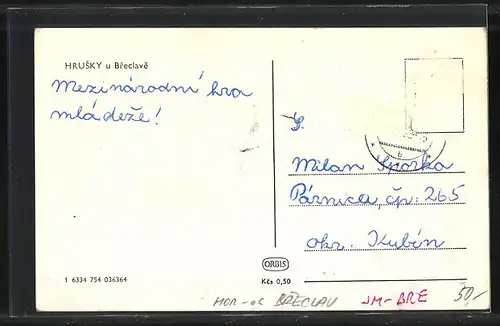 HRUŠKY u Břeclavě
Mezinárodní hra
mládeže!
S.
Milan Sporka
Párnica, čp. 265
okr. Kubín
ORBIS
Kčs 0,50
1 6334 754 036364
MOR-OL BŘECLAV
JM-BRE
50,-